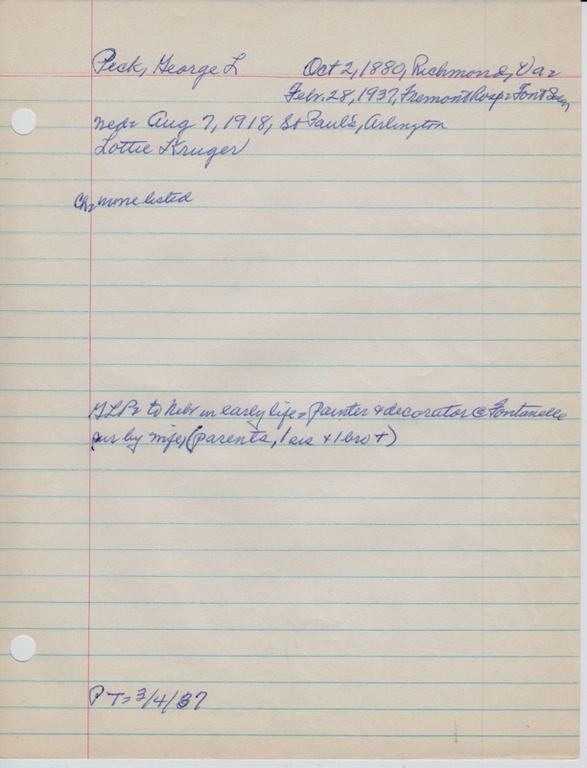 Peck, George L Oct 2, 1880, Richmond, Va=
Feb. 28, 1937, Fremont Hosp= Font Cem
Neb= Aug 7, 1918, St Paul's, Arlington
Lottie Kruger
Ch= none listed
GLP= to Nebr in early life= painter & decorator @ Fontanelle
sur by wife, (parents, 1 sis & 1 bro +)
PT= 3/4/37